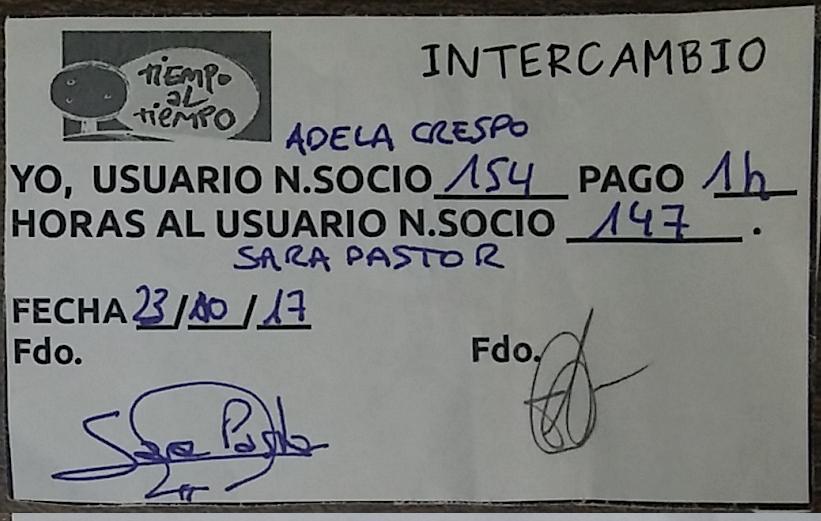 tiEMPo
aL
tiEMPO
INTERCAMBIO
ADELA CRESPO
YO, USUARIO N.SOCIO 154 PAGO 1h
HORAS AL USUARIO N.SOCIO 147.
SARA PASTOR
FECHA 23/10/17
Fdo. Fdo.
Sara Pastor